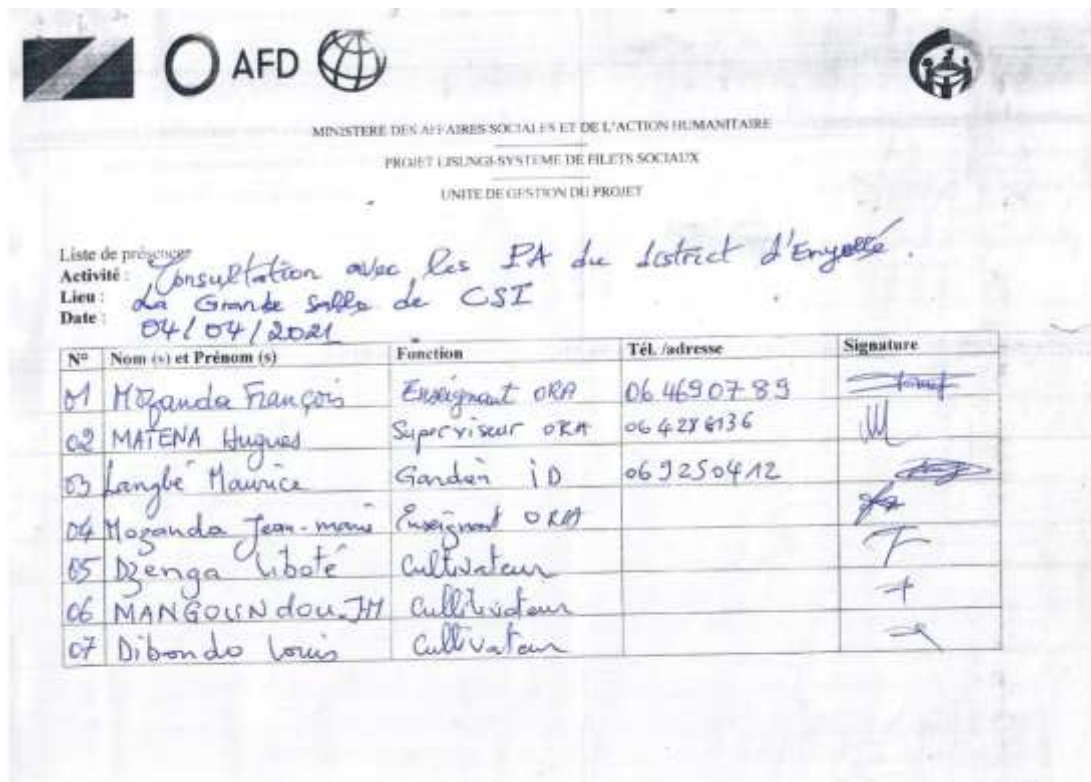 AFD
MINISTERE DES AFFAIRES SOCIALES ET DE L'ACTION HUMANITAIRE
PROJET LISUNGI-SYSTEME DE FILETS SOCIAUX
UNITE DE GESTION DU PROJET
Liste de présence
Activité : Consultation avec les PA du district d'Enyellé.
Lieu : La Grande Salle de CSI
Date : 04/04/2021
N° Nom (s) et Prénom (s) Fonction Tél. /adresse Signature
01 Mozanda François Enseignant ORA 06 469 07 89
02 MATENA Hugues Superviseur ORA 06 428 6136
03 Langbé Maurice Gardien iD 06 9250412
04 Mozanda Jean-marie Enseignant ORA
05 Dzenga Liboté Cultivateur
06 MANGOUNdou JH Cultivateur
07 Dibondo Louis Cultivateur